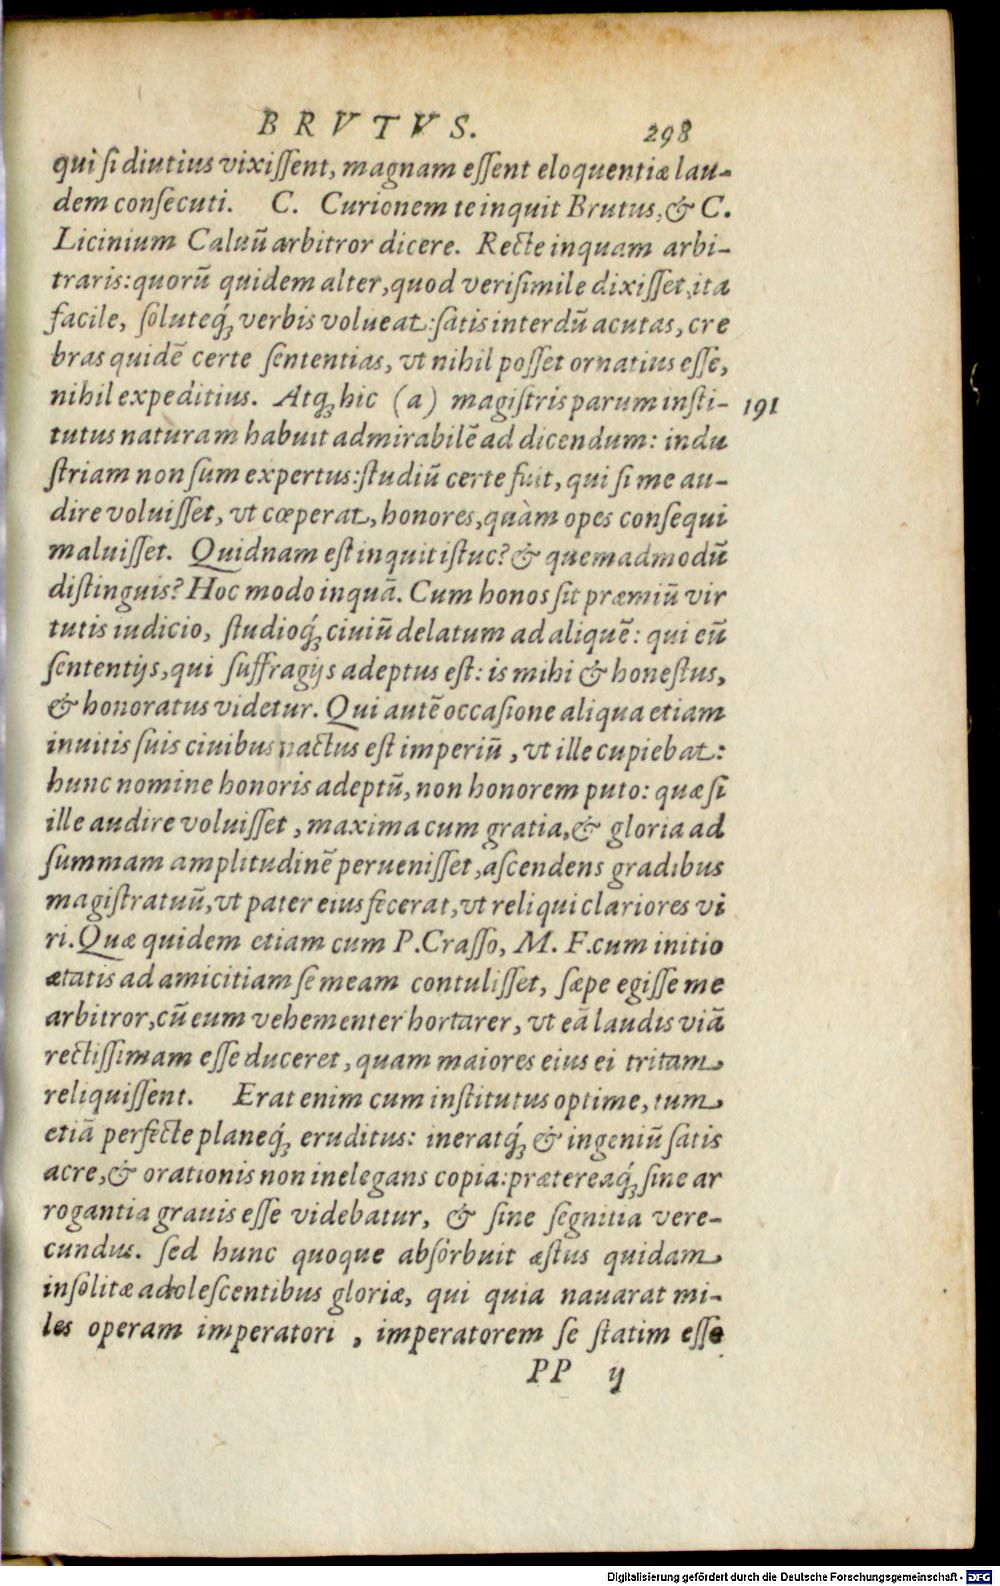 BRVTVS. 298
qui si diutius vixissent, magnam essent eloquentiæ lau-
dem consecuti. C. Curionem te inquit Brutus, & C.
Licinium Caluū arbitror dicere. Recte inquam arbi-
traris: quorū quidem alter, quod verisimile dixisset, ita
facile, soluteq́; verbis volueat: satis interdū acutas, cre
bras quidē certe sententias, vt nihil posset ornatius esse,
nihil expeditius. Atq; hic (a) magistris parum insti- 191
tutus naturam habuit admirabilē ad dicendum: indu
striam non sum expertus: studiū certe fuit, qui si me au-
dire voluisset, vt cœperat, honores, quàm opes consequi
maluisset. Quidnam est inquit istuc? & quemadmodū
distinguis? Hoc modo inquā. Cum honos sit præmiū vir
tutis iudicio, studioq́; ciuiū delatum ad aliquē: qui eū
sententijs, qui suffragijs adeptus est: is mihi & honestus,
& honoratus videtur. Qui autē occasione aliqua etiam
inuitis suis ciuibus nactus est imperiū, vt ille cupiebat:
hunc nomine honoris adeptū, non honorem puto: quæ si
ille audire voluisset, maxima cum gratia, & gloria ad
summam amplitudinē peruenisset, ascendens gradibus
magistratuū, vt pater eius fecerat, vt reliqui clariores vi
ri. Quæ quidem etiam cum P. Crasso, M. F. cum initio
ætatis ad amicitiam se meam contulisset, sæpe egisse me
arbitror, cū eum vehementer hortarer, vt eā laudis viā
rectissimam esse duceret, quam maiores eius ei tritam
reliquissent. Erat enim cum institutus optime, tum
etiā perfecte planeq́; eruditus: ineratq́; & ingeniū satis
acre, & orationis non inelegans copia: prætereaq́; sine ar
rogantia grauis esse videbatur, & sine segnitia vere-
cundus. sed hunc quoque absorbuit æstus quidam
insolitæ adolescentibus gloriæ, qui quia nauarat mi-
les operam imperatori, imperatorem se statim esse
PP ij
Digitalisierung gefördert durch die Deutsche Forschungsgemeinschaft - DFG